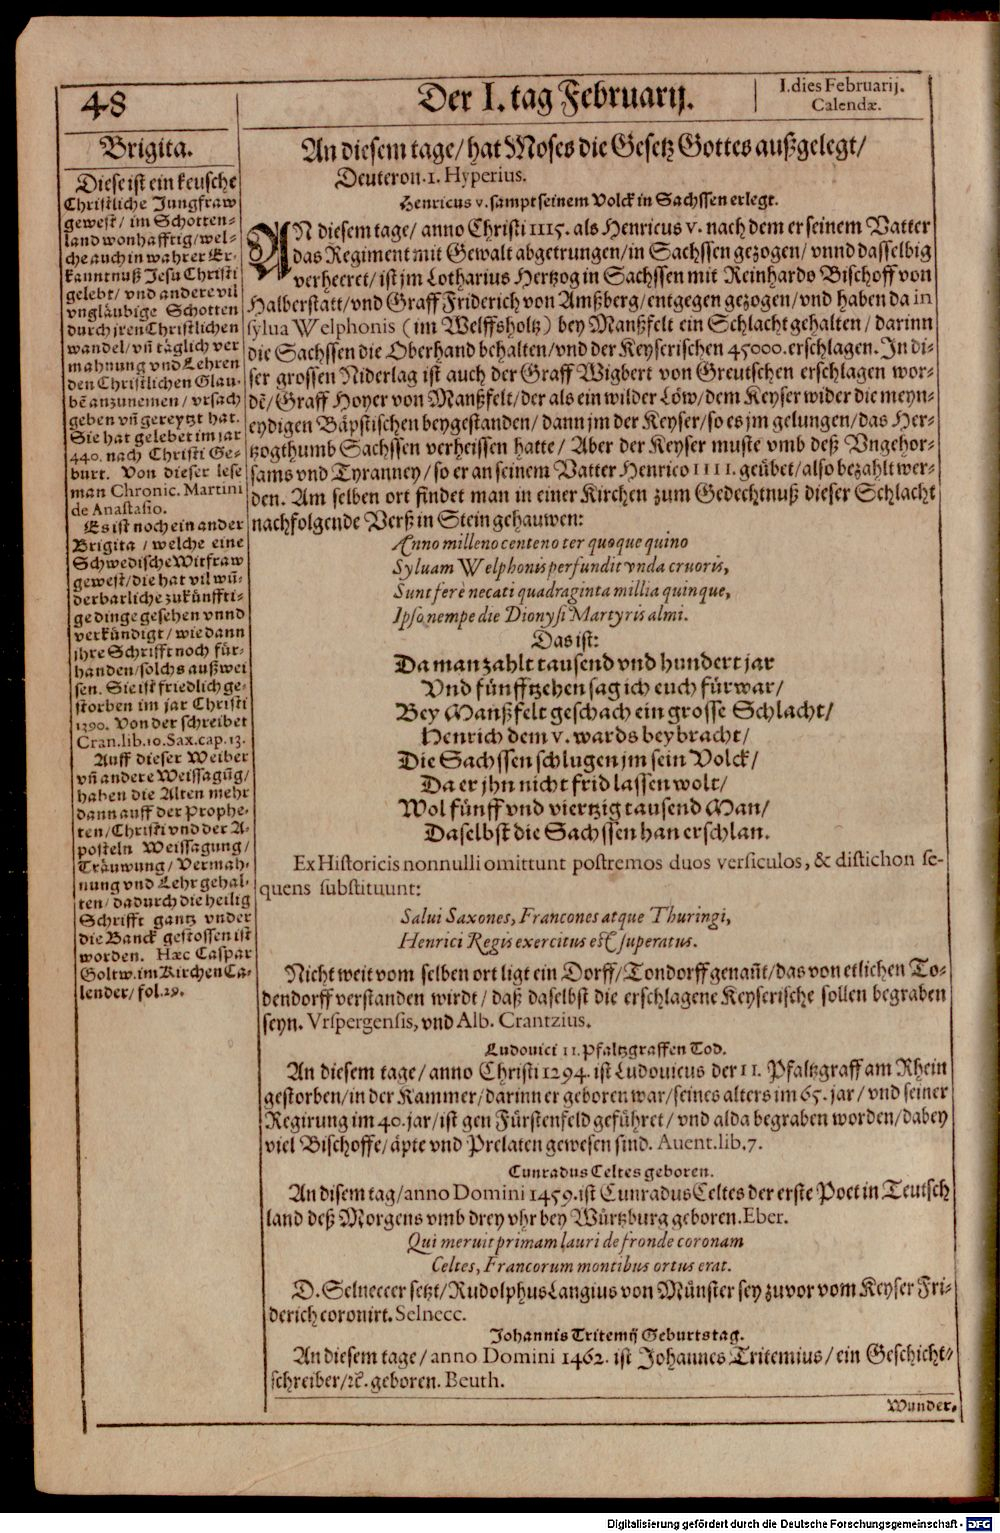 48
Der I. tag Februarij.
I. dies Februarij.
Calendæ.
Brigita.
Diese ist ein keusche
Christliche Jungfraw
gewest / im Schotten-
land wonhafftig / wel-
che auch in wahrer Er-
kanntnuß Jesu Christi
gelebt / vnd andere vil
vngläubige Schotten
durch jren Christlichen
wandel / vñ täglich ver
mahnung vnd Lehren
den Christlichen Glau-
bẽ anzunemen / vrsach
geben vñ gereytzt hat.
Sie hat gelebet im jar
440. nach Christi Ge-
burt. Von dieser lese
man Chronic. Martini
de Anastasio.
Es ist noch ein ander
Brigita / welche eine
Schwedische Witfraw
gewest / die hat vil wũ-
derbarliche zukünffti-
ge dinge gesehen vnnd
verkündigt / wie dann
jhre Schrifft noch für-
handen / solchs außwei
sen. Sie ist friedlich ge-
storben im jar Christi
1390. Von der schreibet
Cran. lib. 10. Sax. cap. 13.
Auff dieser Weiber
vñ andere Weissagũg /
haben die Alten mehr
dann auff der Prophe-
ten / Christi vnd der A-
posteln Weissagung /
Träuwung / Vermah-
nung vnd Lehr gehal-
ten / dadurch die heilig
Schrifft gantz vnder
die Banck gestossen ist
worden. Hæc Caspar
Goltw. im Kirchen Ca-
lender / fol. 29.
An diesem tage / hat Moses die Gesetz Gottes außgelegt /
Deuteron. 1. Hyperius.
Henricus v. sampt seinem Volck in Sachssen erlegt.
AN diesem tage / anno Christi 1115. als Henricus v. nach dem er seinem Vatter
das Regiment mit Gewalt abgetrungen / in Sachssen gezogen / vnnd dasselbig
verheeret / ist im Lotharius Hertzog in Sachssen mit Reinhardo Bischoff von
Halberstatt / vnd Graff Friderich von Amßberg / entgegen gezogen / vnd haben da in
sylua Welphonis (im Welffsholtz) bey Manßfelt ein Schlacht gehalten / darinn
die Sachssen die Oberhand behalten / vnd der Keyserischen 45000. erschlagen. In di-
ser grossen Niderlag ist auch der Graff Wigbert von Greutschen erschlagen wor-
dẽ / Graff Hoyer von Manßfelt / der als ein wilder Löw / dem Keyser wider die meyn-
eydigen Bäpstischen beygestanden / dann jm der Keyser / so es jm gelungen / das Her-
tzogthumb Sachssen verheissen hatte / Aber der Keyser muste vmb deß Vngehor-
sams vnd Tyranney / so er an seinem Vatter Henrico IIII. geübet / also bezahlt wer-
den. Am selben ort findet man in einer Kirchen zum Gedechtnuß dieser Schlacht
nachfolgende Verß in Stein gehauwen:
Anno milleno centeno ter quoque quino
Syluam Welphonis perfundit vnda cruoris,
Sunt ferè necati quadraginta millia quinque,
Ipso nempe die Dionysi Martyris almi.
Das ist:
Da man zahlt tausend vnd hundert jar
Vnd fünfftzehen sag ich euch fürwar /
Bey Manßfelt geschach ein grosse Schlacht /
Henrich dem v. wards beybracht /
Die Sachssen schlugen jm sein Volck /
Da er jhn nicht frid lassen wolt /
Wol fünff vnd viertzig tausend Man /
Daselbst die Sachssen han erschlan.
Ex Historicis nonnulli omittunt postremos duos versiculos, & distichon se-
quens substituunt:
Salui Saxones, Francones atque Thuringi,
Henrici Regis exercitus est superatus.
Nicht weit vom selben ort ligt ein Dorff / Tondorff genañt / das von etlichen To-
dendorff verstanden wirdt / daß daselbst die erschlagene Keyserische sollen begraben
seyn. Vrspergensis, vnd Alb. Crantzius.
Ludouici II. Pfaltzgraffen Tod.
An diesem tage / anno Christi 1294. ist Ludouicus der II. Pfaltzgraff am Rhein
gestorben / in der Kammer / darinn er geboren war / seines alters im 65. jar / vnd seiner
Regirung im 40. jar / ist gen Fürstenfeld geführet / vnd alda begraben worden / dabey
viel Bischoffe / äpte vnd Prelaten gewesen sind. Auent. lib. 7.
Cunradus Celtes geboren.
An disem tag / anno Domini 1459. ist Cunradus Celtes der erste Poet in Teutsch
land deß Morgens vmb drey vhr bey Würtzburg geboren. Eber.
Qui meruit primam lauri de fronde coronam
Celtes, Francorum montibus ortus erat.
D. Selneccer setzt / Rudolphus Langius von Münster sey zuvor vom Keyser Fri-
derich coronirt. Selnecc.
Johannis Tritemij Geburtstag.
An diesem tage / anno Domini 1462. ist Johannes Tritemius / ein Geschicht-
schreiber / ꝛc. geboren. Beuth.
Wunder.
Digitalisierung gefördert durch die Deutsche Forschungsgemeinschaft - DFG